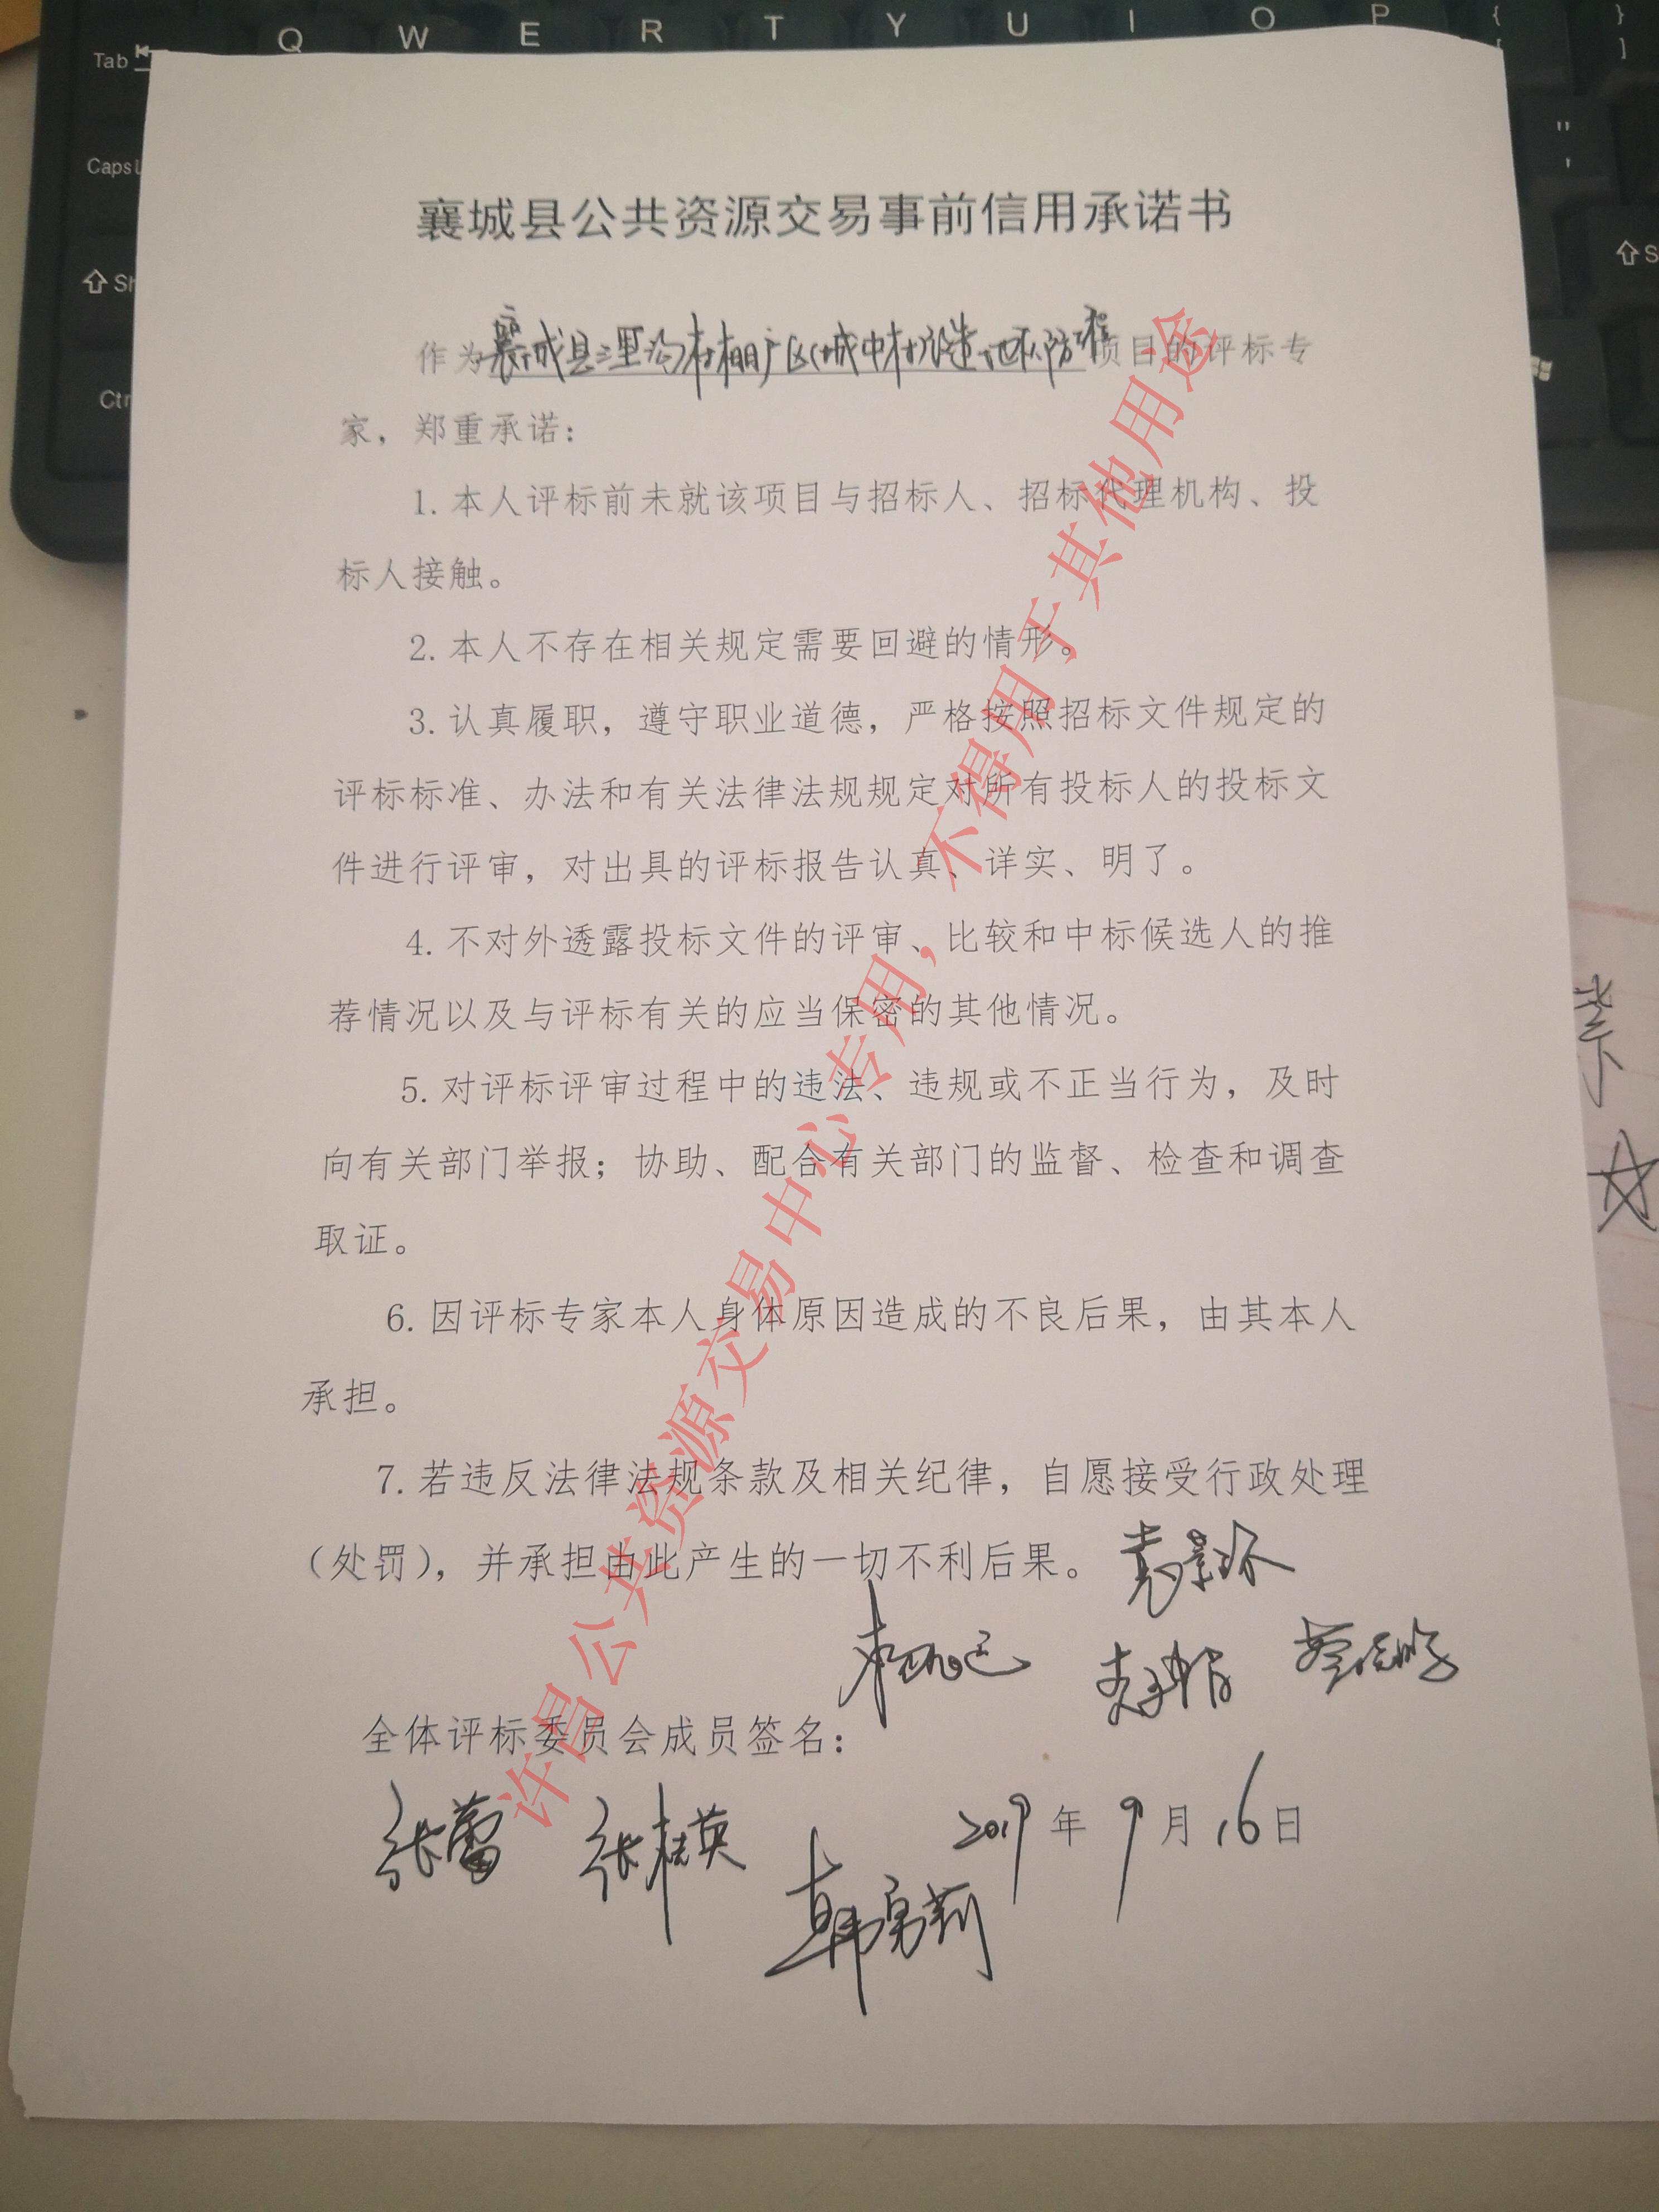 Tab Q W E R T Y U I O P { [ } ]
Caps " '
襄城县公共资源交易事前信用承诺书
作为襄城县三里沟村棚户区(城中村)改造 项目的评标专
家，郑重承诺：
1.本人评标前未就该项目与招标人、招标代理机构、投
标人接触。
2.本人不存在相关规定需要回避的情形。
3.认真履职，遵守职业道德，严格按照招标文件规定的
评标标准、办法和有关法律法规规定对所有投标人的投标文
件进行评审，对出具的评标报告认真、详实、明了。
4.不对外透露投标文件的评审、比较和中标候选人的推
荐情况以及与评标有关的应当保密的其他情况。
5.对评标评审过程中的违法、违规或不正当行为，及时
向有关部门举报；协助、配合有关部门的监督、检查和调查
取证。
6.因评标专家本人身体原因造成的不良后果，由其本人
承担。
7.若违反法律法规条款及相关纪律，自愿接受行政处理
（处罚），并承担由此产生的一切不利后果。
全体评标委员会成员签名：
张蕾 张桂英 韩勇莉
2019年9月16日
许昌公共资源交易中心专用，不得用于其他用途